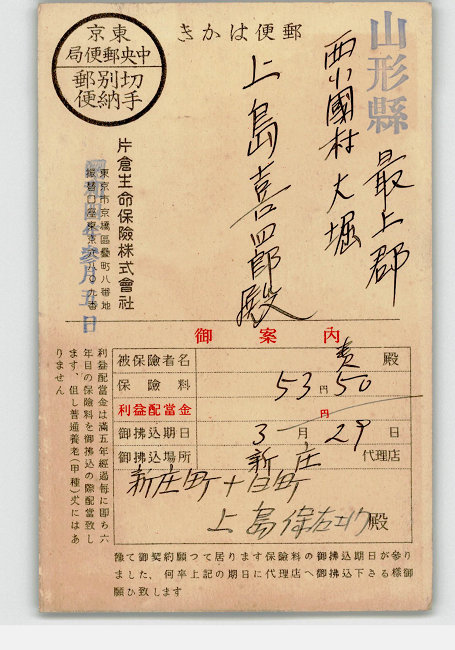 郵便はかき
東京
中央郵便局
切手別納郵便
山形縣
最上郡
西小國村大堀
上島喜四郎殿
片倉生命保險株式會社
東京市京橋區
御案内
被保險者名 殿
保險料 53円50
利益配當金 円
御拂込期日 3月29日
御拂込場所 新庄代理店
新庄町十日町
上島 殿
利益配當金は滿五年經過每に即ち六
年目の保險料を御拂込の際配當致し
ます、但し普通養老(甲種)式にはあ
りません
豫て御契約願つて居ります保險料の御拂込期日が參り
ました、何卒上記の期日に代理店へ御拂込下さる樣御
願ひ致します